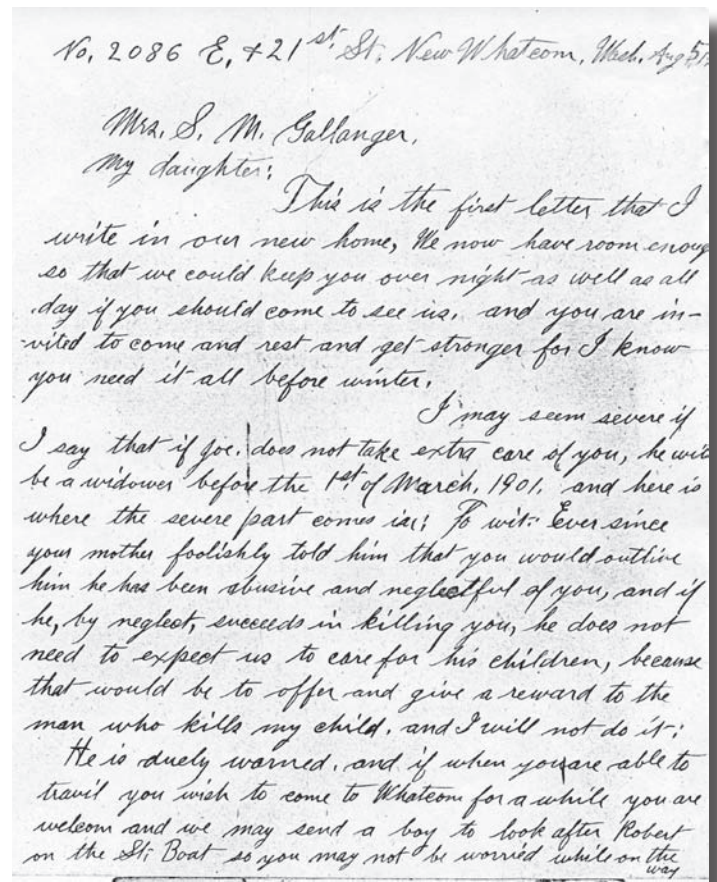 No. 2086 E, + 21st. St. New Whatcom, Wash. Aug 5,
Mrs. S. M. Gallanger.
My daughter:
This is the first letter that I
write in our new home, We now have room enoug
so that we could keep you over night as well as all
day if you should come to see us. and you are in-
-vited to come and rest and get stronger for I know
you need it all before winter.
I may seem severe if
I say that if Joe. does not take extra care of you, he will
be a widower before the 1st of March, 1901. and here is
where the severe part comes in: To wit: Ever since
your mother foolishly told him that you would outlive
him he has been abusive and neglectful of you, and if
he, by neglect, succeeds in killing you, he does not
need to expect us to care for his children, because
that would be to offer and give a reward to the
man who kills my child. and I will not do it;
He is duely warned. and if when you are able to
travil you wish to come to Whatcom for a while you are
welcom and we may send a boy to look after Robert
on the St. Boat so you may not be worried while on the
way